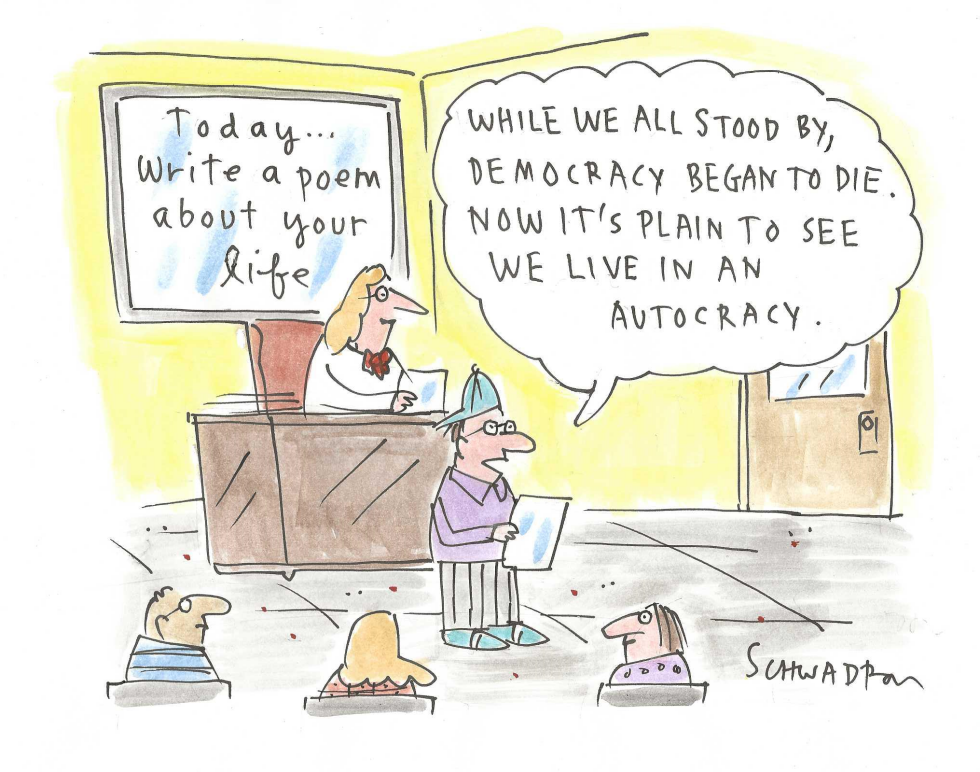 Today...
Write a poem
about your
life
WHILE WE ALL STOOD BY,
DEMOCRACY BEGAN TO DIE.
NOW IT'S PLAIN TO SEE
WE LIVE IN AN
AUTOCRACY.
SCHWADRON